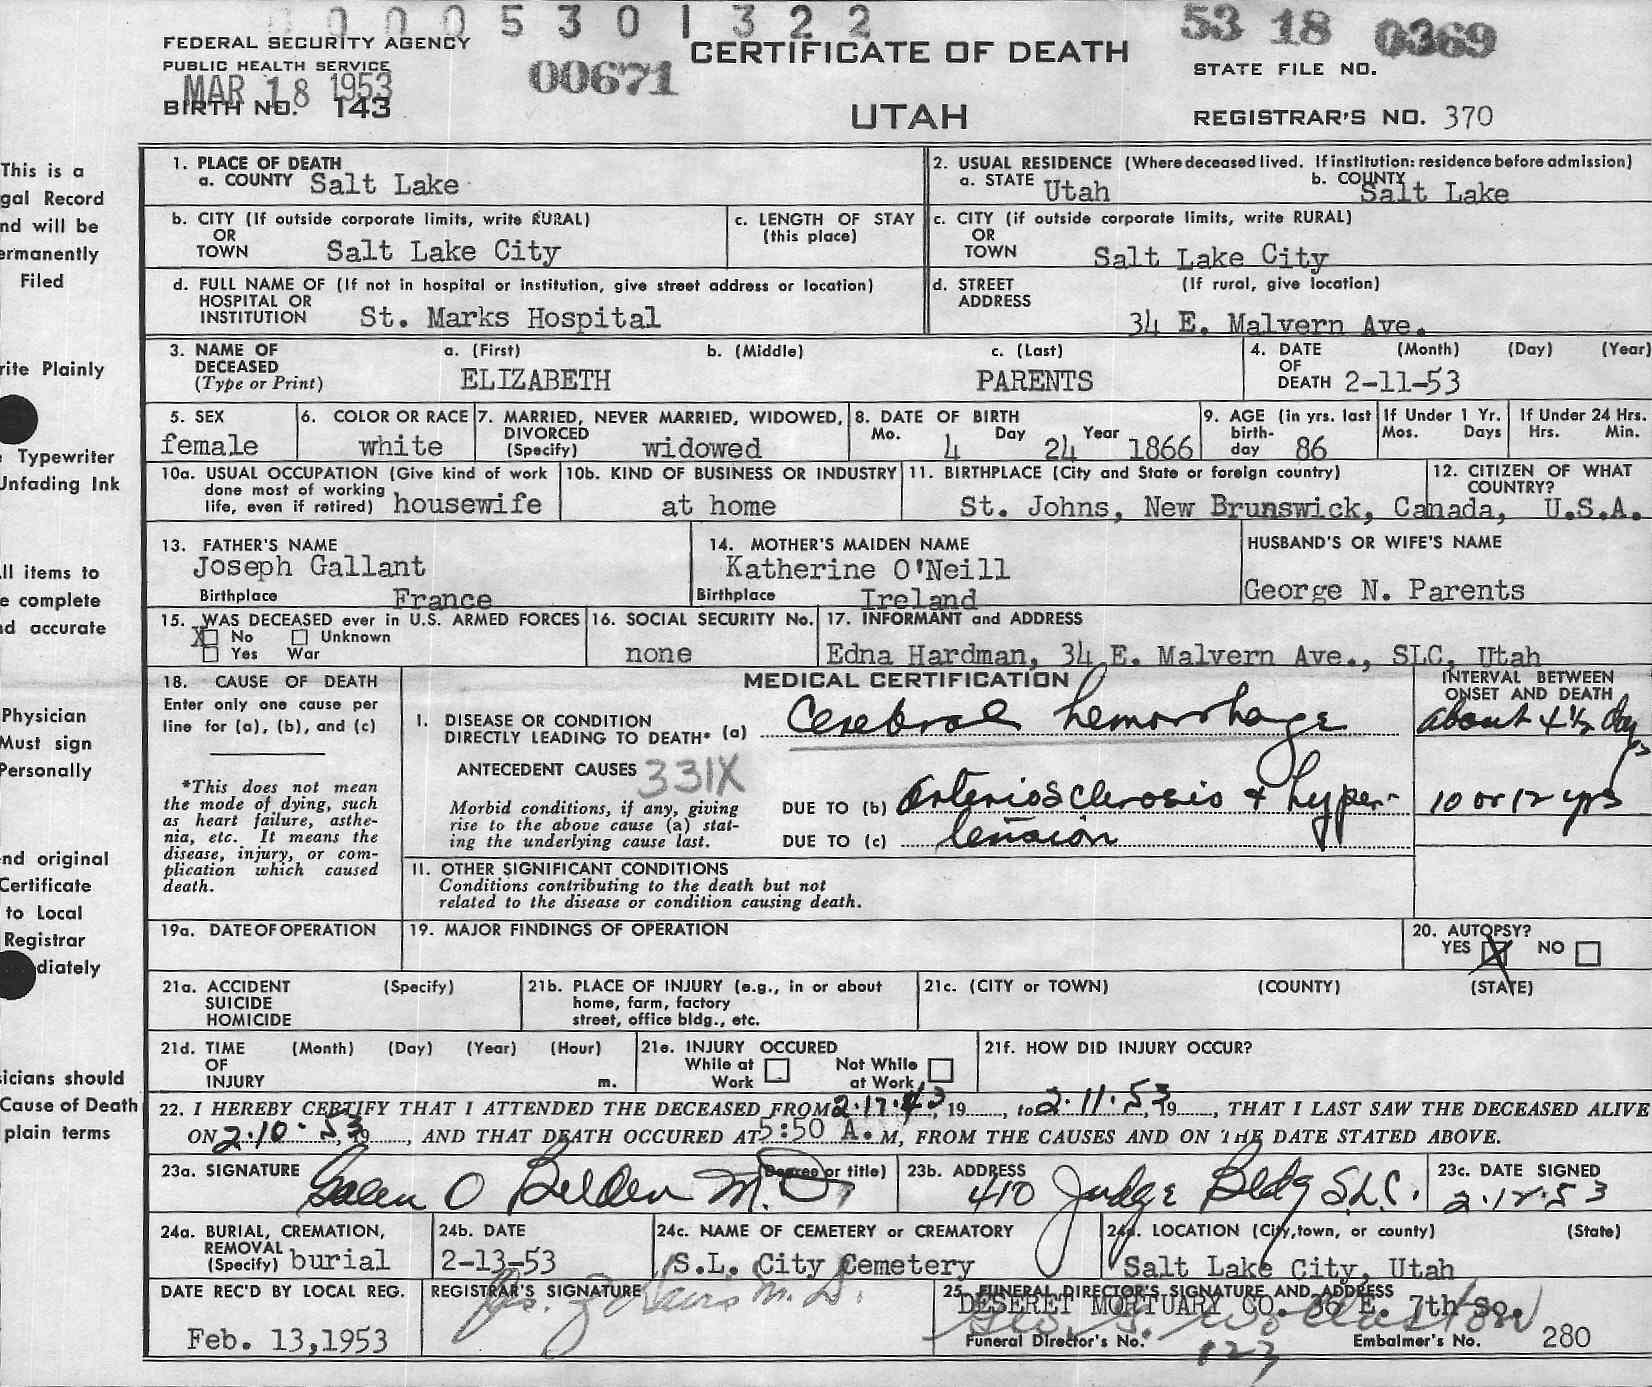 0 0 0 0 5 3 0 1 3 2 2
FEDERAL SECURITY AGENCY
PUBLIC HEALTH SERVICE
MAR 18 1953
BIRTH NO. 143
00671
CERTIFICATE OF DEATH
UTAH
53 18 0369
STATE FILE NO.
REGISTRAR'S NO. 370
This is a
gal Record
nd will be
ermanently
Filed
rite Plainly
Typewriter
Unfading Ink
ll items to
e complete
nd accurate
Physician
Must sign
Personally
nd original
Certificate
to Local
Registrar
diately
sicians should
Cause of Death
plain terms
1. PLACE OF DEATH
a. COUNTY Salt Lake
2. USUAL RESIDENCE (Where deceased lived. If institution: residence before admission)
a. STATE Utah b. COUNTY Salt Lake
b. CITY (If outside corporate limits, write RURAL)
OR
TOWN Salt Lake City
c. LENGTH OF STAY
(this place)
c. CITY (if outside corporate limits, write RURAL)
OR
TOWN Salt Lake City
d. FULL NAME OF (If not in hospital or institution, give street address or location)
HOSPITAL OR
INSTITUTION St. Marks Hospital
d. STREET (If rural, give location)
ADDRESS
34 E. Malvern Ave.
3. NAME OF a. (First) b. (Middle) c. (Last)
DECEASED
(Type or Print) ELIZABETH PARENTS
4. DATE (Month) (Day) (Year)
OF
DEATH 2-11-53
5. SEX
female
6. COLOR OR RACE
white
7. MARRIED, NEVER MARRIED, WIDOWED,
DIVORCED
(Specify) widowed
8. DATE OF BIRTH
Mo. 4 Day 24 Year 1866
9. AGE (in yrs. last
birth-
day 86
If Under 1 Yr.
Mos. Days
If Under 24 Hrs.
Hrs. Min.
10a. USUAL OCCUPATION (Give kind of work
done most of working
life, even if retired) housewife
10b. KIND OF BUSINESS OR INDUSTRY
at home
11. BIRTHPLACE (City and State or foreign country)
St. Johns, New Brunswick, Canada,
12. CITIZEN OF WHAT
COUNTRY?
U.S.A.
13. FATHER'S NAME
Joseph Gallant
Birthplace France
14. MOTHER'S MAIDEN NAME
Katherine O'Neill
Birthplace Ireland
HUSBAND'S OR WIFE'S NAME
George N. Parents
15. WAS DECEASED ever in U.S. ARMED FORCES
X No Unknown
Yes War
16. SOCIAL SECURITY No.
none
17. INFORMANT and ADDRESS
Edna Hardman, 34 E. Malvern Ave., SLC, Utah
18. CAUSE OF DEATH
Enter only one cause per
line for (a), (b), and (c)
*This does not mean
the mode of dying, such
as heart failure, asthe-
nia, etc. It means the
disease, injury, or com-
plication which caused
death.
MEDICAL CERTIFICATION
INTERVAL BETWEEN
ONSET AND DEATH
I. DISEASE OR CONDITION
DIRECTLY LEADING TO DEATH* (a) Cerebral hemorrhage
about 4½ days
ANTECEDENT CAUSES 331X
Morbid conditions, if any, giving
rise to the above cause (a) stat-
ing the underlying cause last.
DUE TO (b) arteriosclerosis + hyper-
10 or 12 yrs
DUE TO (c) tension
II. OTHER SIGNIFICANT CONDITIONS
Conditions contributing to the death but not
related to the disease or condition causing death.
19a. DATE OF OPERATION
19. MAJOR FINDINGS OF OPERATION
20. AUTOPSY?
YES X NO
21a. ACCIDENT (Specify)
SUICIDE
HOMICIDE
21b. PLACE OF INJURY (e.g., in or about
home, farm, factory
street, office bldg., etc.
21c. (CITY or TOWN) (COUNTY) (STATE)
21d. TIME (Month) (Day) (Year) (Hour)
OF
INJURY m.
21e. INJURY OCCURED
While at Not While
Work at Work
21f. HOW DID INJURY OCCUR?
22. I HEREBY CERTIFY THAT I ATTENDED THE DECEASED FROM 2.17.43, 19......, to 2.11.53, 19......, THAT I LAST SAW THE DECEASED ALIVE
ON 2.10.53, 19......, AND THAT DEATH OCCURED AT 5:50 A.M, FROM THE CAUSES AND ON THE DATE STATED ABOVE.
23a. SIGNATURE (Degree or title)
Galen O Belden M.D.
23b. ADDRESS
410 Judge Bldg S.L.C.
23c. DATE SIGNED
2.12.53
24a. BURIAL, CREMATION,
REMOVAL
(Specify) burial
24b. DATE
2-13-53
24c. NAME OF CEMETERY or CREMATORY
S.L. City Cemetery
24d. LOCATION (City, town, or county) (State)
Salt Lake City, Utah
DATE REC'D BY LOCAL REG.
Feb. 13,1953
REGISTRAR'S SIGNATURE
M.D.
25. FUNERAL DIRECTOR'S SIGNATURE AND ADDRESS
DESERET MORTUARY CO. 36 E. 7th So.
Funeral Director's No. 123
Embalmer's No. 280